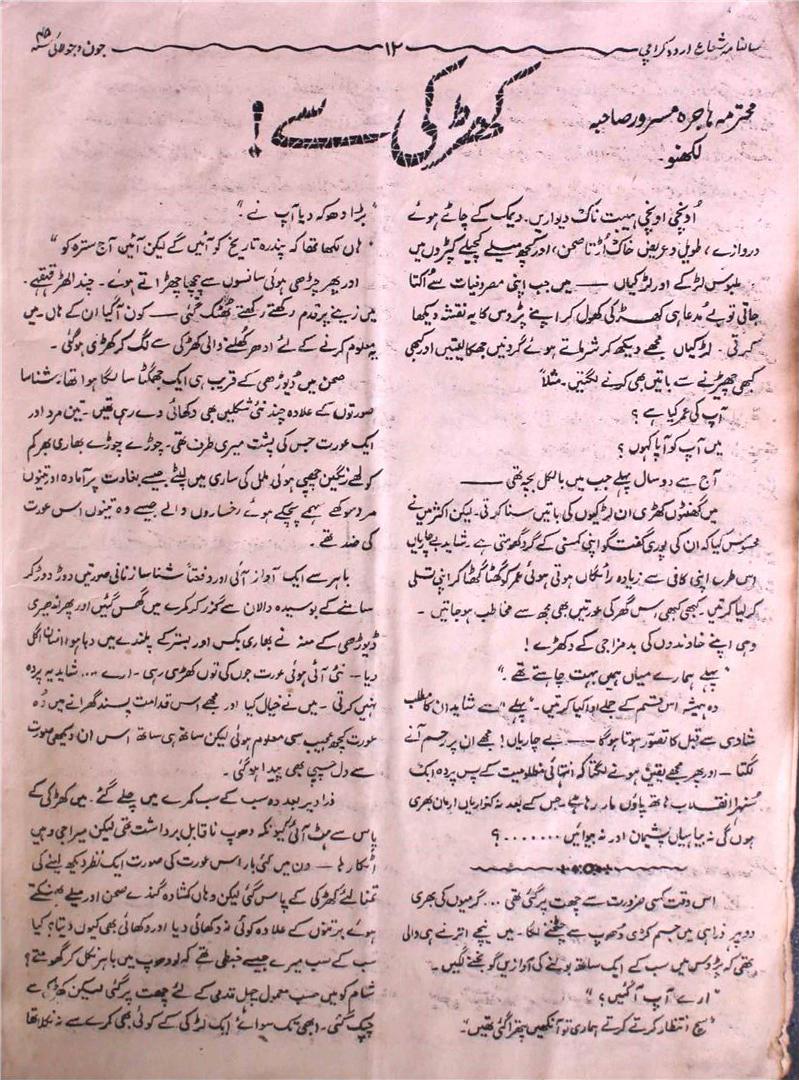 سالنامہ شعاع اردو کراچی
۱۲
جون و جولائی
کھڑکی سے!
محترمہ ہاجرہ مسرور صاحبہ
لکھنو۔
اُونچی اونچی ہیبت ناک دیواریں۔ دیمک کے چاٹے ہوئے
دروازے، طویل و عریض خاک اُڑتا صحن، اور کچھ میلے کچیلے کپڑوں میں
ملبوس لڑکے اور لڑکیاں —— میں جب اپنی مصروفیات سے اُکتا
جاتی تو بے مُدعا ہی کھڑکی کھول کر اپنے پڑوس کا یہ نقشہ دیکھا
کرتی۔ لڑکیاں مجھے دیکھ کر شرماتے ہوئے گردنیں جھکا لیتیں اور کبھی
کبھی چھیڑنے سے باتیں بھی کرنے لگتیں۔ مثلاً
آپ کی عمر کیا ہے؟
میں آپ کو آپا کہوں؟
آج سے دو سال پہلے جب میں بالکل بچہ تھی ——
میں گھنٹوں کھڑی ان لڑکیوں کی باتیں سنا کرتی۔ لیکن اکثر میں نے
محسوس کیا کہ ان کی پوری گفتگو اپنی کمسنی کے گرد گھومتی ہے۔ شاید بے چاریاں
اس طرح اپنی کافی سے زیادہ رائگاں ہوتی ہوئی عمر کو گھٹا گھٹا کر اپنی تسلی
کر لیا کرتیں۔ کبھی کبھی اس گھر کی عورتیں بھی مجھ سے مخاطب ہو جاتیں۔
وہی اپنے خاوندوں کی بد مزاجی کے دکھڑے!
"پہلے ہمارے میاں ہمیں بہت چاہتے تھے۔"
وہ ہمیشہ اس قسم کے جملے ادا کیا کرتیں۔ "پہلے" سے شاید ان کا مطلب
شادی سے قبل کا تصوّر ہوتا ہوگا —— بے چاریاں! مجھے ان پر رحم آنے
لگتا — اور پھر مجھے یقین ہونے لگتا کہ انتہائی مظلومیت کے پس پردہ ایک
سُنہرا انقلاب ہاتھ پاؤں مار رہا ہے۔ جس کے بعد نہ کنواریاں ارمان بھری
ہوں گی نہ بیاہیاں پشیمان اور نہ جوانیں ........؟
اس وقت کسی ضرورت سے چھت پر گئی تھی ... گرمیوں کی بھری
دوپہر ذرا ہی میں جسم کڑی دُھوپ سے چٹخنے لگا۔ میں نیچے اترنے ہی والی
تھی کہ پڑوس میں سب کے ایک ساتھ بولنے کی آوازیں گونجنے لگیں۔
"ارے آپ آ گئیں؟"
"سچ انتظار کرتے کرتے ہماری تو آنکھیں پتھرا گئی تھیں۔"
"بڑا دھوکہ دیا آپ نے۔"
"ہاں لکھا تھا کہ پندرہ تاریخ کو آئیں گے لیکن آئیں آج سترہ کو"
اور پھر چڑھی ہوئی سانسوں سے پیچھا چھڑاتے ہوئے۔ چند الھڑ قہقہے۔
میں زینے پر قدم رکھتے رکھتے ٹھٹک گئی — کون آ گیا ان کے ہاں۔ میں
یہ معلوم کرنے کے لئے ادھر کُھلنے والی کھڑکی سے لگ کر کھڑی ہو گئی۔
صحن میں ڈیوڑھی کے قریب ہی ایک جمگھٹا سا لگا ہوا تھا۔ شناسا
صورتوں کے علاوہ چند نئی شکلیں بھی دکھائی دے رہی تھیں۔ تین مرد اور
ایک عورت جس کی پشت میری طرف تھی۔ چوڑے چوڑے بھاری بھرکم
کولھے رنگین چھپی ہوئی ململ کی ساری میں لپٹے جیسے بغاوت پر آمادہ اور تینوں
مرد سوکھے سہمے پچکے ہوئے رخساروں والے جیسے وہ تینوں اس عورت
کی ضد تھے۔
باہر سے ایک آواز آئی اور دفعتاً شناسا زنانی صورتیں دوڑ دوڑ کر
سامنے کے بوسیدہ دالان سے گزر کر کمرے میں گھس گئیں اور پھر اندھیری
ڈیوڑھی کے منہ نے بھاری بکس اور بستر کے پلندے میں دبا ہوا انسان اگل
دیا — نئی آئی ہوئی عورت جوں کی توں کھڑی رہی۔ ارے ... شاید یہ پردہ
نہیں کرتی۔ میں نے خیال کیا اور مجھے اس قدامت پسند گھرانے میں وُہ
عورت کچھ عجیب سی معلوم ہوئی لیکن ساتھ ہی ساتھ اس ان دیکھی صورت
سے دلچسپی بھی پیدا ہو گئی۔
ذرا دیر بعد وہ سب کے سب کمرے میں چلے گئے۔ میں کھڑکی کے
پاس سے ہٹ آئی کیونکہ دھوپ ناقابل برداشت تھی لیکن میرا جی وہیں
اٹکا رہا — دن میں کئی بار اس عورت کی صورت ایک نظر دیکھ لینے کی
تمنا لئے کھڑکی کے پاس گئی لیکن وہاں کشادہ گندے صحن اور میلے بھنکتے
ہوئے برتنوں کے علاوہ کوئی نہ دکھائی دیا اور دکھائی بھی کیوں دیتا؟ کیا
سب کے سب میرے جیسے خبطی تھے کہ لُو دھوپ میں باہر نکل کر گھومتے؟
شام کو میں حسب معمول چہل قدمی کے لئے چھت پر گئی لیکن کھڑکی سے
چپک گئی۔ ابھی تک سوائے ایک لڑکی کے کوئی بھی کمرے سے نہ نکلا تھا